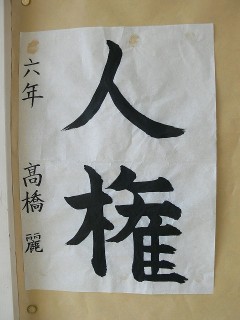 人権
六年 高橋 麗